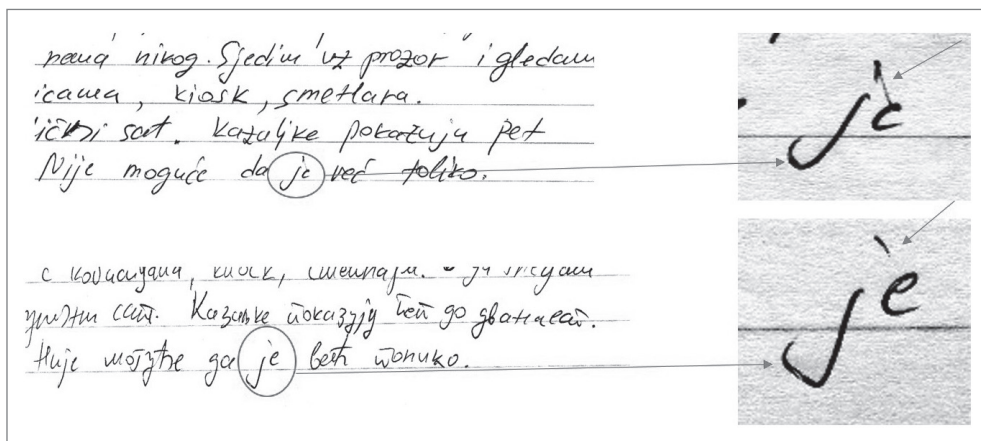 nema nikog. Sjedim uz prozor i gledam
icama, kiosk, smetlara.
ički sat. Kazaljke pokazuju pet
Nije moguće da je već toliko.
jè
с киоск,
сат. Казаљке показују пет до дванаест.
Није могуће да је већ толико.
jè